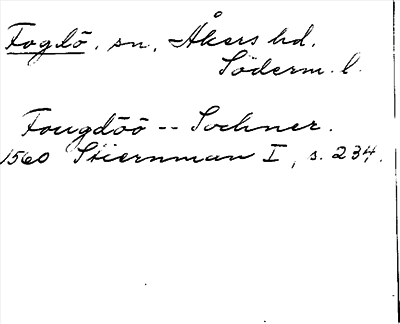 Fogdö, sn, Åkers hd.
Söderm. l.
Fougdöö -- Sochner.
1560 Stiernman I, s. 234.